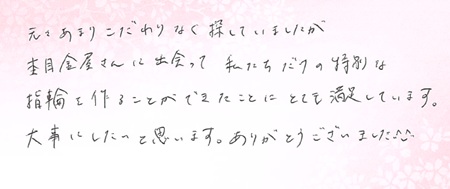 元々あまりこだわりなく探していましたが
杢目金屋さんに出会って 私たちだけの特別な
指輪を作ることができたことにとても満足しています。
大事にしたいと思います。ありがとうございました^^